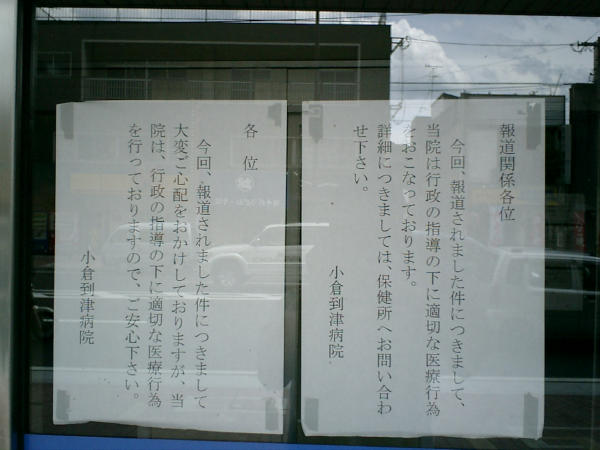 報道関係各位
今回、報道されました件につきまして、
当院は行政の指導の下に適切な医療行為
をおこなっております。
詳細につきましては、保健所へお問い合わ
せ下さい。
小倉到津病院
各位
今回、報道されました件につきまして
大変ご心配をおかけしておりますが、当
院は、行政の指導の下に適切な医療行為
を行っておりますので、ご安心下さい。
小倉到津病院